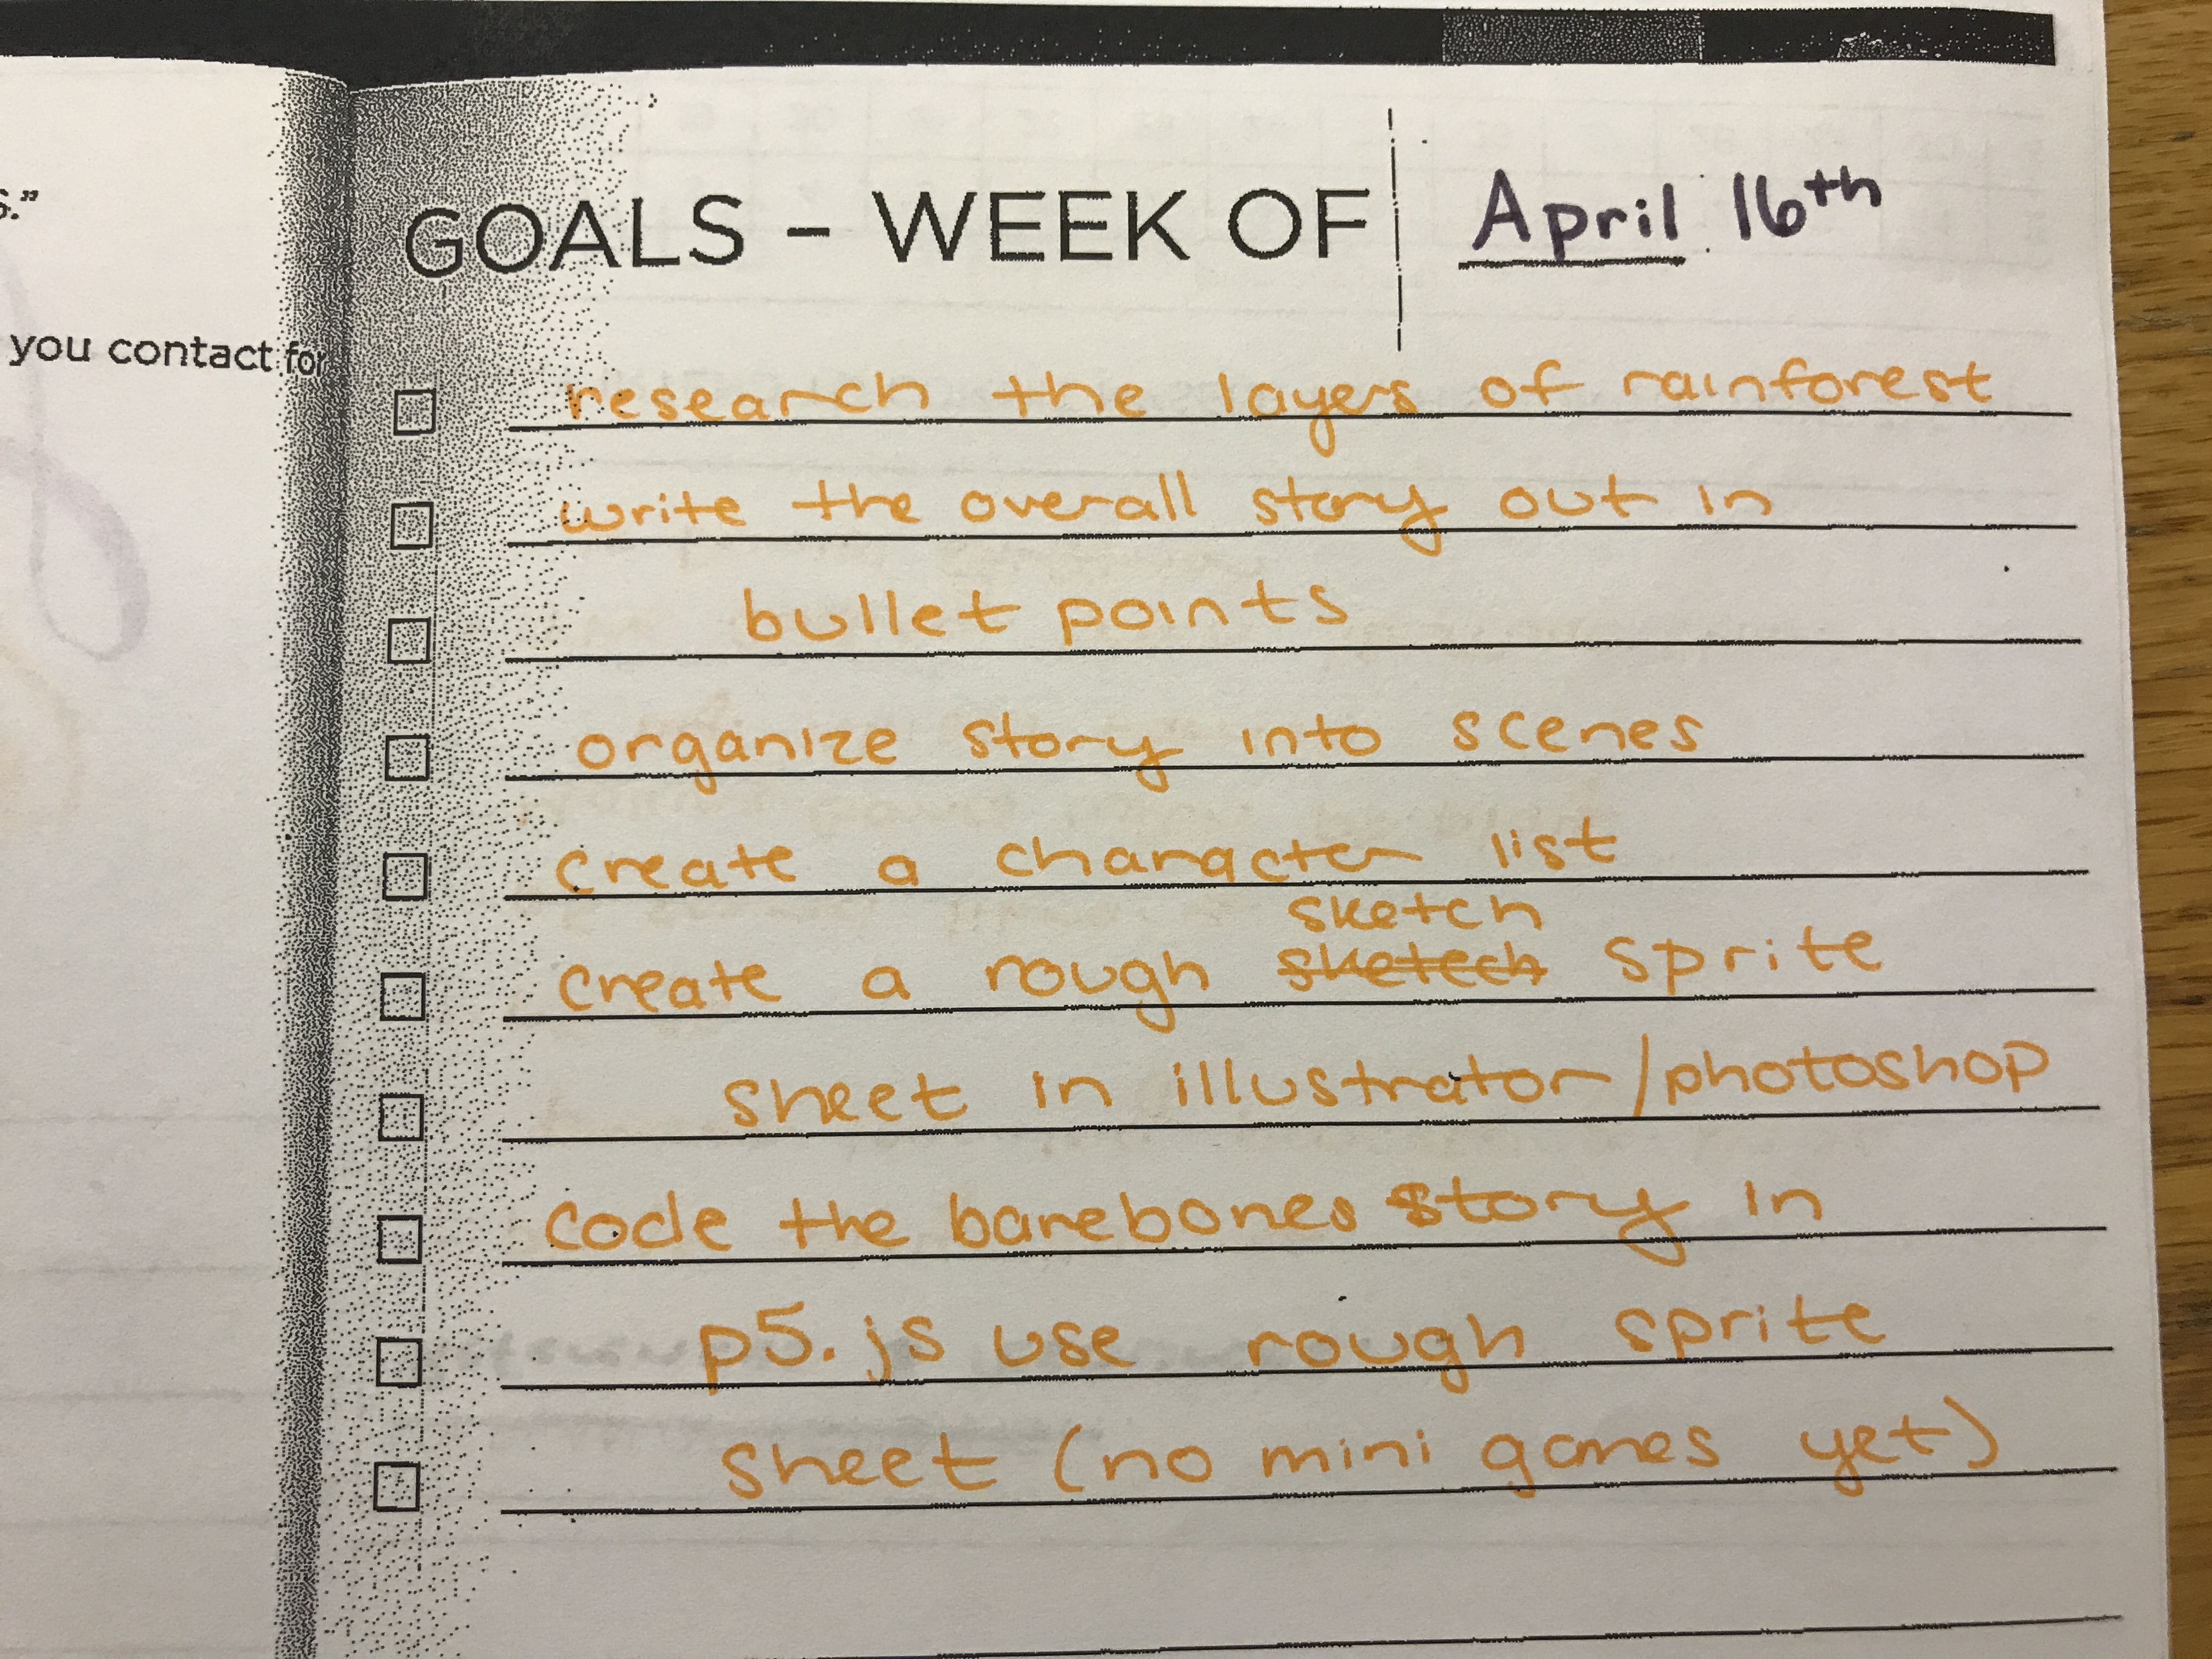 s.”
you contact for
GOALS – WEEK OF April 16th
research the layers of rainforest
write the overall story out in
bullet points
organize story into scenes
create a character list
sketch
create a rough sketech sprite
sheet in illustrator/photoshop
code the barebones story in
p5.js use rough sprite
sheet (no mini games yet)